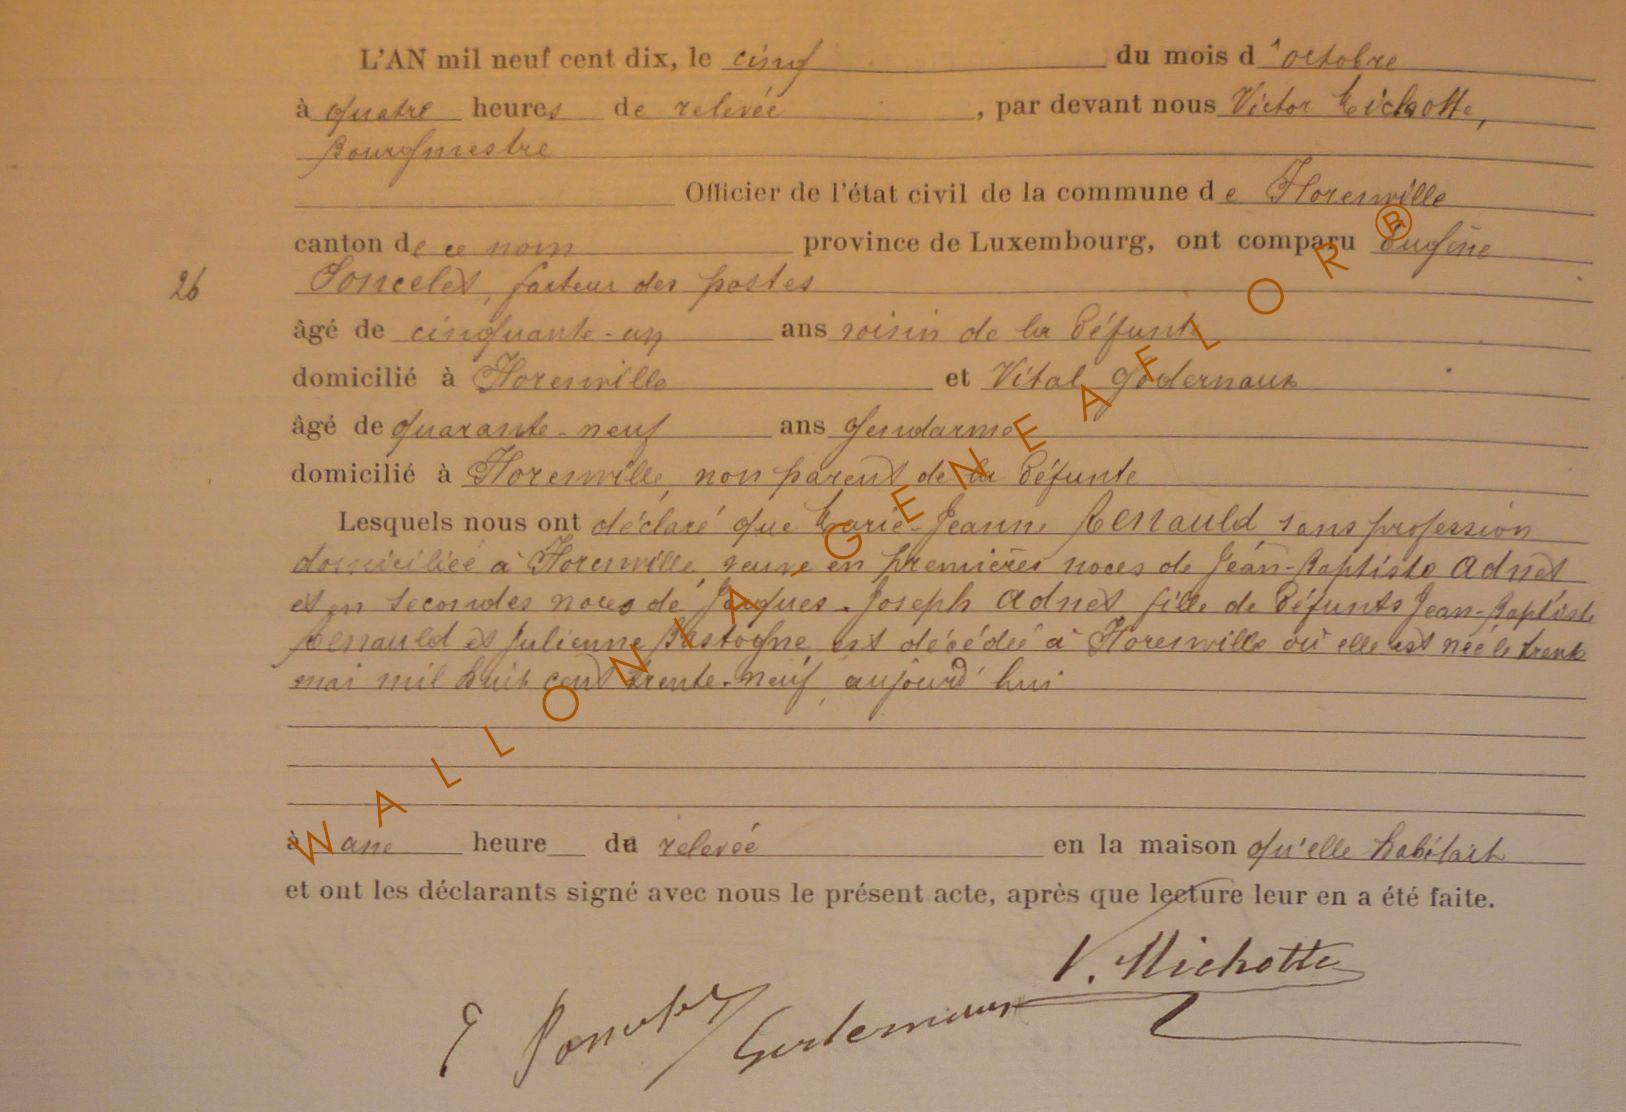 L'AN mil neuf cent dix, le cinq du mois d'octobre
à quatre heures de relevée, par devant nous Victor Michotte,
Bourgmestre
Officier de l'état civil de la commune de Florenville
canton de ce nom province de Luxembourg, ont comparu Eugène
26 Poncelet, facteur des postes
âgé de cinquante-un ans voisin de la défunte
domicilié à Florenville et Vital Godernaux
âgé de quarante-neuf ans gendarme
domicilié à Florenville, non parent de la défunte
Lesquels nous ont déclaré que Marie-Jeanne Renauld sans profession
domiciliée à Florenville, veuve en premières noces de Jean-Baptiste Adnet
et en secondes noces de Jacques-Joseph Adnet fille de défunts Jean-Baptiste
Renauld et Julienne Bastogne est décédée à Florenville où elle est née le trente
mai mil huit cent trente-neuf, aujourd'hui
à une heure de relevée en la maison qu'elle habitait
et ont les déclarants signé avec nous le présent acte, après que lecture leur en a été faite.
V. Michotte
E Poncelet Godernaux
WALLONIA, GENEAFLOR®